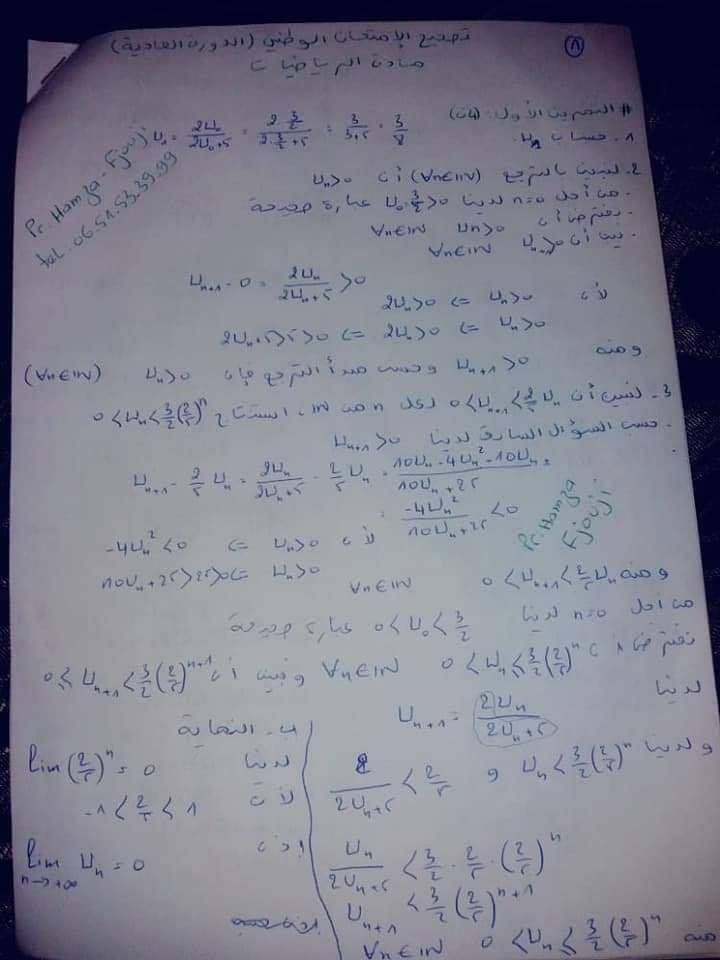 تصحيح الإمتحان الوطني (الدورة العادية)
مادة الرياضيات
# التمرين الأول: (4ن)
1. حساب U₁ U₁ = 2U₀/(2U₀+5) = (2·3/2)/(2·3/2+5) = 3/(3+5) = 3/8
Pr. Hamza - Fjouji
tel. 06.51.53.39.99
2. لنبين بالترجع (∀n∈ℕ) أن Uₙ>0
من أجل n=0 لدينا U₀=3/2>0 عبارة صحيحة
نفترض أن Uₙ>0 ∀n∈ℕ
نبين أن Uₙ₊₁>0 ∀n∈ℕ
Uₙ₊₁ - 0 = 2Uₙ/(2Uₙ+5) > 0
لأن Uₙ>0 => 2Uₙ>0
Uₙ>0 => 2Uₙ>0 => 2Uₙ+5>5>0
ومنه Uₙ₊₁>0 وحسب مبدأ الترجع فإن Uₙ>0 (∀n∈ℕ)
3. لنبين أن 0<Uₙ₊₁<2/5 Uₙ لكل n من ℕ، استنتاج 0<Uₙ≤3/2(2/5)ⁿ
حسب السؤال السابق لدينا Uₙ₊₁>0
Uₙ₊₁ - 2/5 Uₙ = 2Uₙ/(2Uₙ+5) - 2/5 Uₙ = (10Uₙ-4Uₙ²-10Uₙ)/(10Uₙ+25) =
= -4Uₙ²/(10Uₙ+25) < 0
Pr. Hamza
Fjouji
لأن Uₙ>0 => -4Uₙ²<0
Uₙ>0 => 10Uₙ+25>25>0
ومنه 0<Uₙ₊₁<2/5 Uₙ ∀n∈ℕ
من أجل n=0 لدينا 0<U₀≤3/2 عبارة صحيحة
نفترض أن 0<Uₙ≤3/2(2/5)ⁿ ∀n∈ℕ ونبين أن 0≤Uₙ₊₁≤3/2(2/5)ⁿ⁺¹
لدينا Uₙ₊₁ = 2Uₙ/(2Uₙ+5)
ولدينا Uₙ≤3/2(2/5)ⁿ و 2/(2Uₙ+5) < 2/5
Uₙ/(2Uₙ+5) < 3/2 · 2/5 · (2/5)ⁿ
Uₙ₊₁ < 3/2(2/5)ⁿ⁺¹
منه 0<Uₙ≤3/2(2/5)ⁿ ∀n∈ℕ
4- النهاية
لدينا lim(2/5)ⁿ = 0
لأن -1<2/5<1
إذن
lim Uₙ = 0
n→+∞